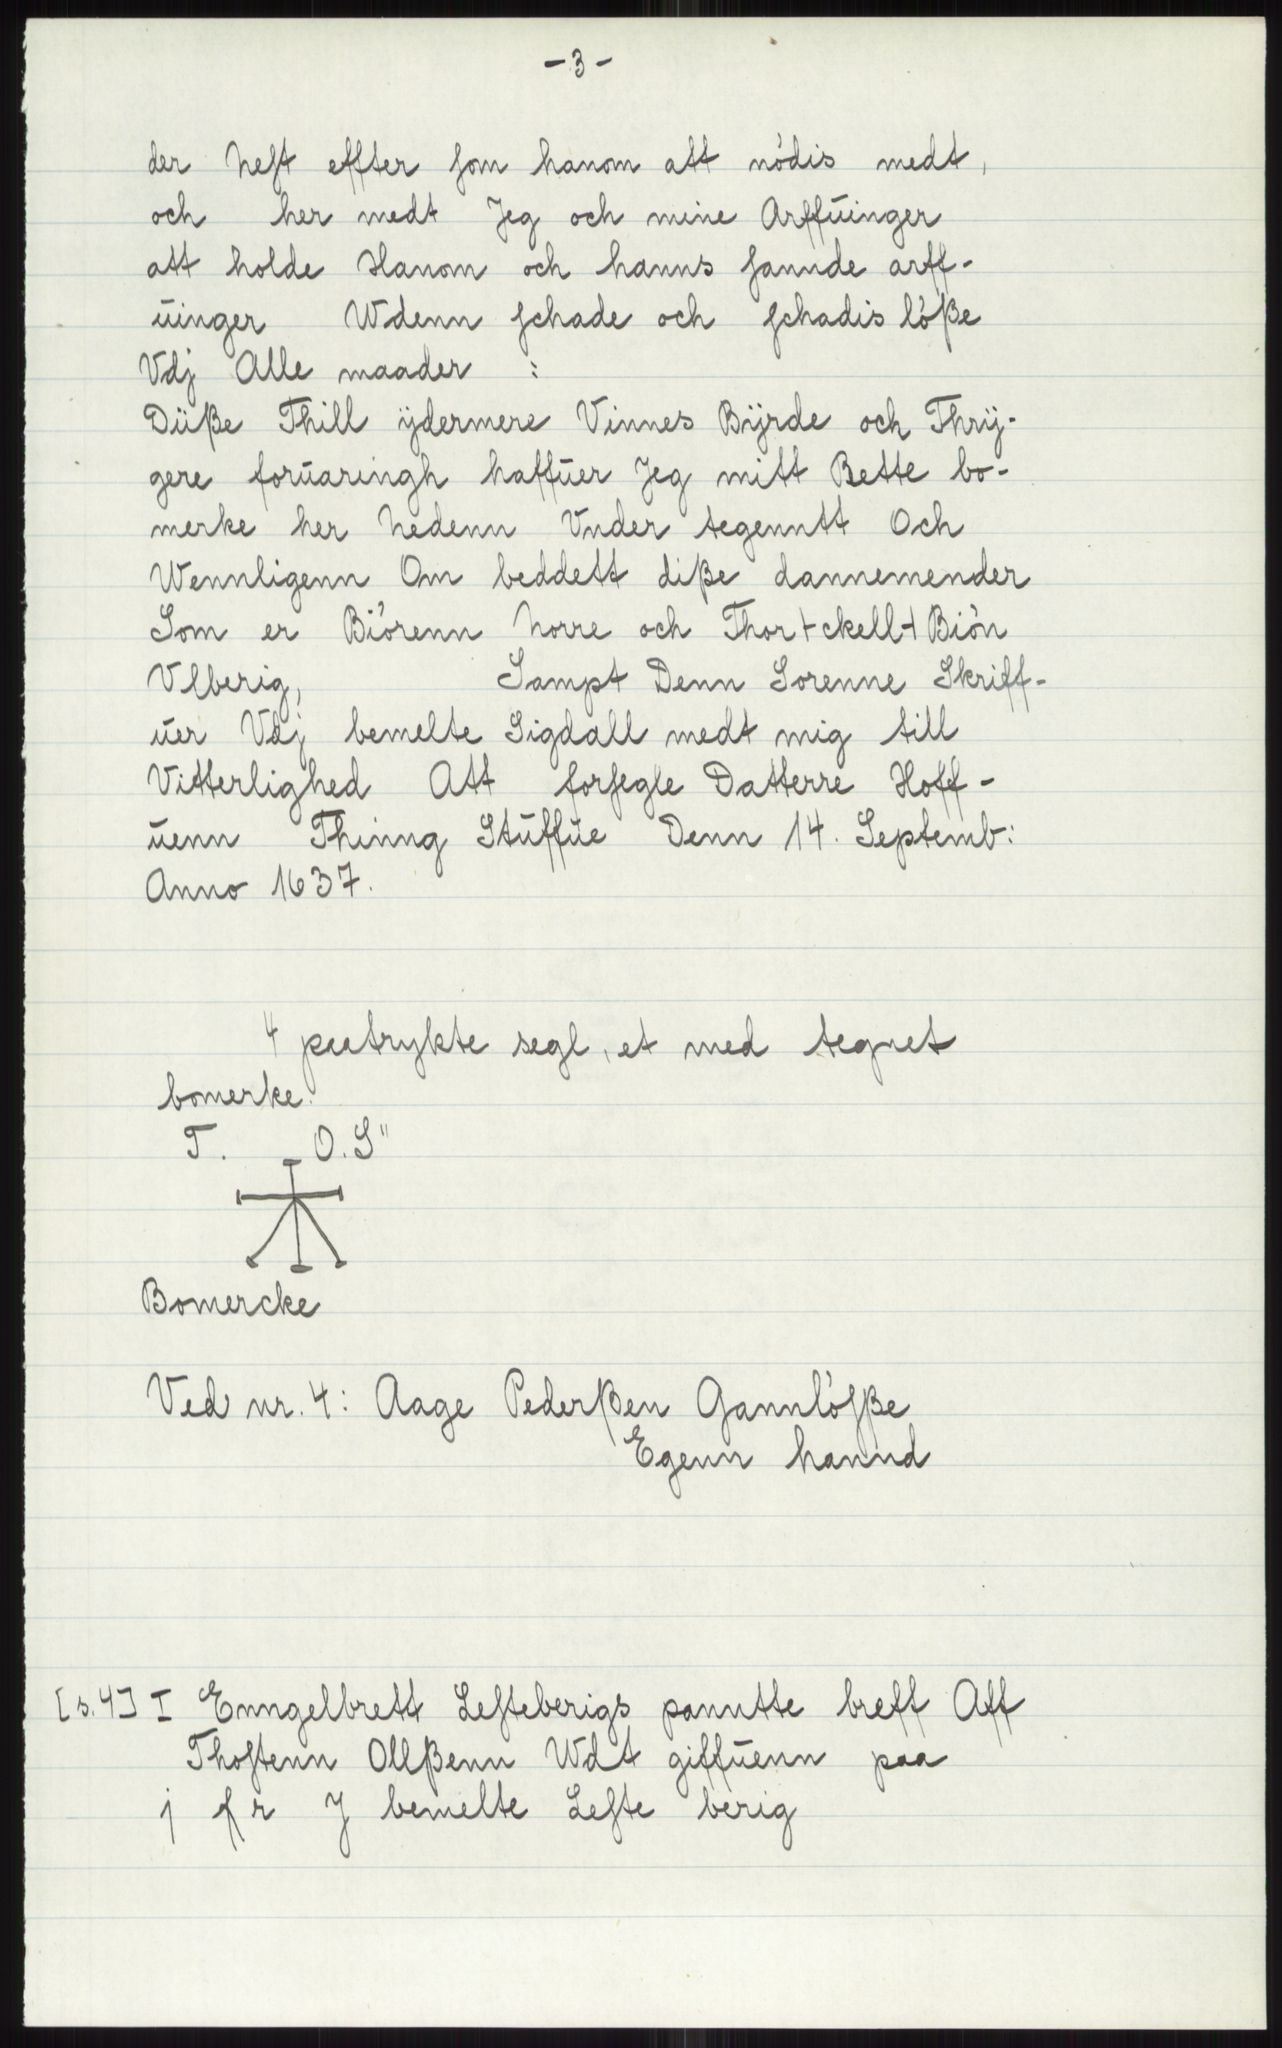 - 3 -
der neſt effter ſom hanom att nódis medt,
och her medt Jeg och mine Arffŭinger
att holde Hanom och hanns ſannde arff-
ŭinger Wdenn ſchade och ſchadis lóße
Vdj Alle maader :
Düße Thill ÿdermere Vinnes Bÿrde och Thrÿ-
gere forŭaringh haffŭer Jeg mitt Bette bo-
merke her nedenn Vnder tegenntt Och
Wennligenn Om beddett diße dannemender
Som er Biórenn Norre och Thor+ckell+ Bión
Vlberig, Sampt Denn Sorenne Skriff-
ŭer Vdj bemelte Sigdall medt mig till
Vitterlighed Att forſegle Datterre Hoff-
ŭenn Thinng Stŭffŭe Denn 14. Septemb:
Anno 1637.
4 paatrykte segl, et med tegnet
bomerke.
T. O. S"
Bomercke
Ved nr. 4: Aage Pederßen Gannlóſße
Egenn hannd
[s.4] I Enngelbrett Leſteberigs panntte breff Aff
Thoſtenn Ollßenn Wdt giffŭenn paa
j ſr J bemelte Leſte berig